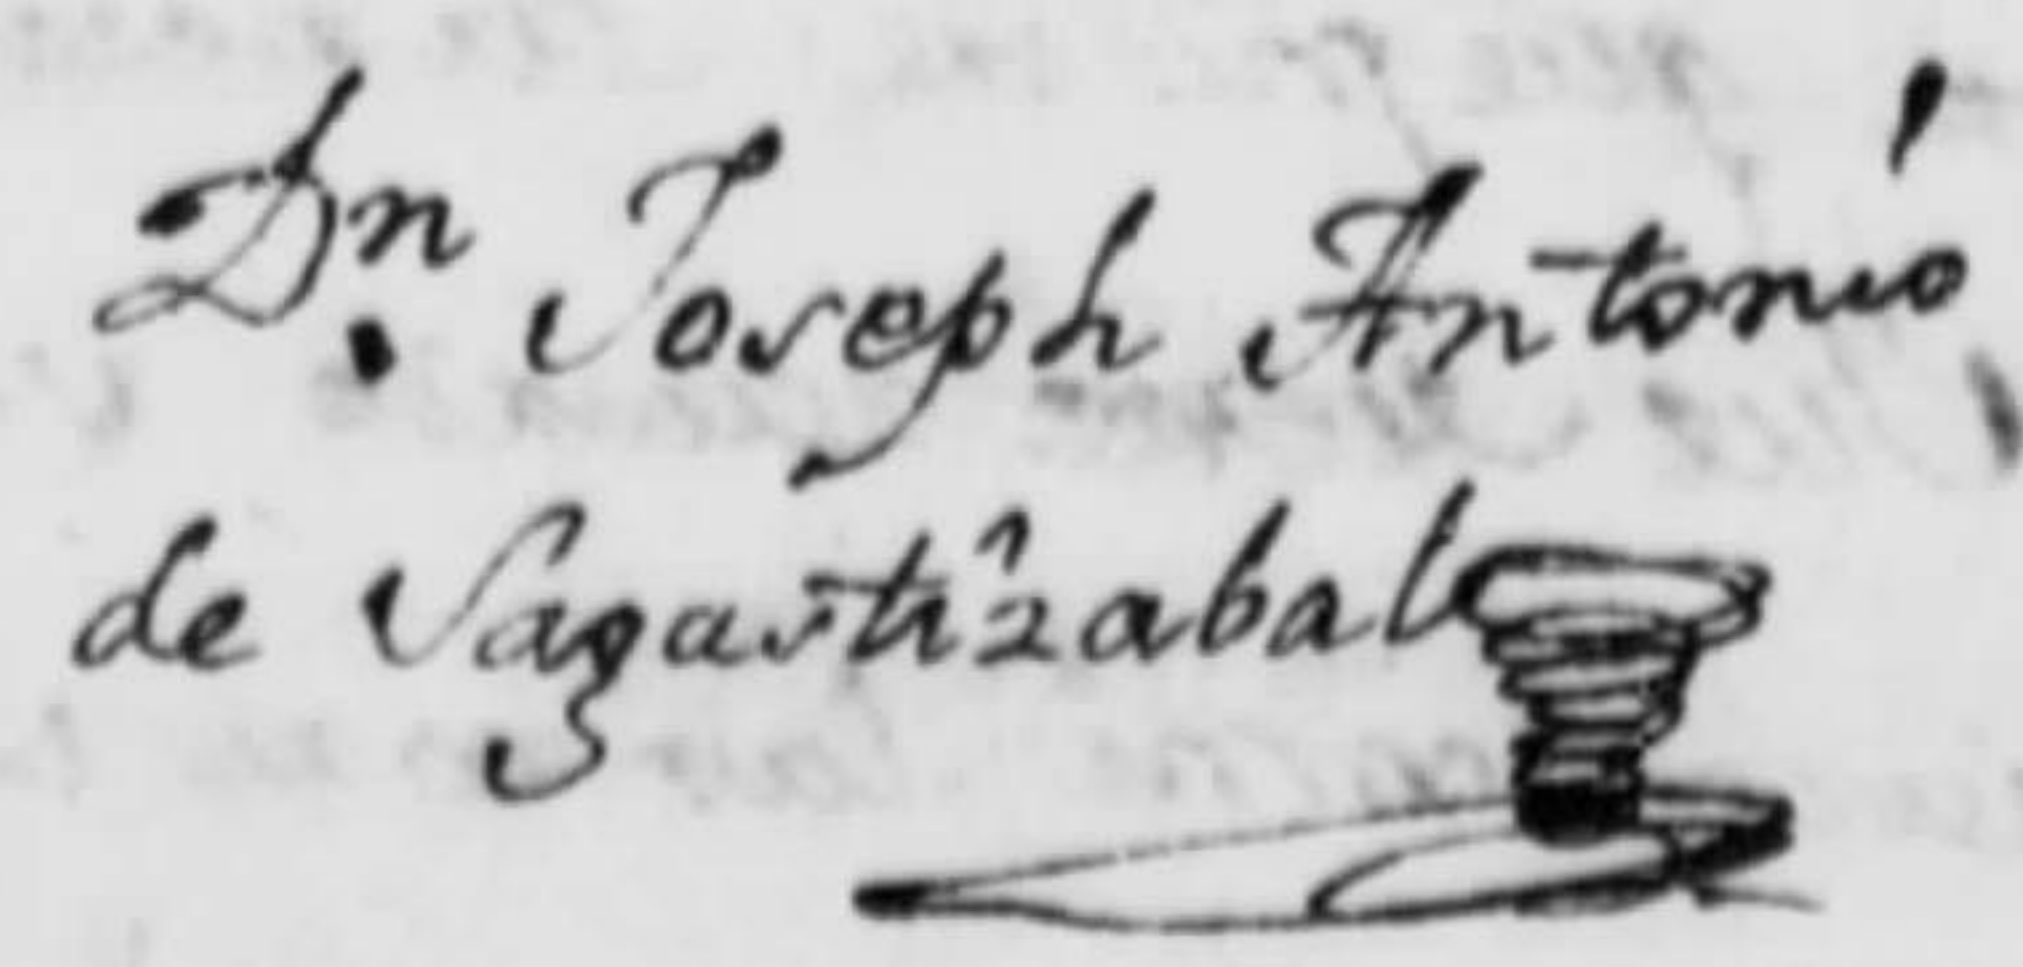 Dn. Joseph Antonio
de Sagastizabal